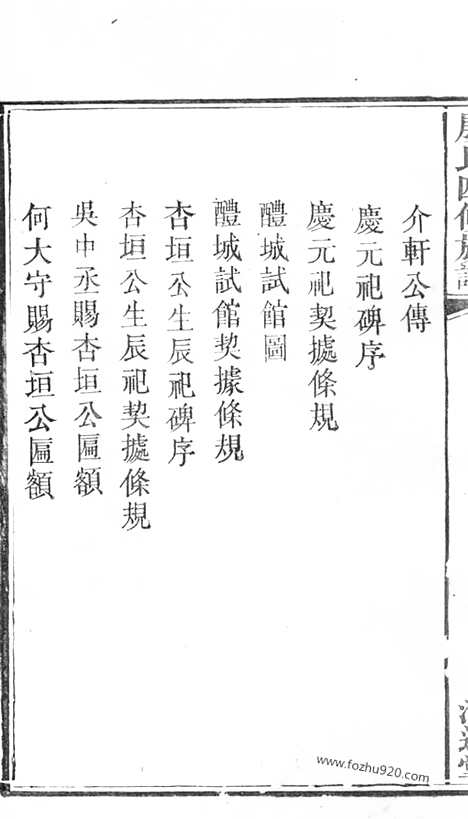 介軒公傳
慶元祀碑序
慶元祀契據條規
醴城試館圖
醴城試館契據條規
杏垣公生辰祀碑序
杏垣公生辰祀契據條規
吳中丞賜杏垣公匾額
何大守賜杏垣公匾額
www.fozhu920.com